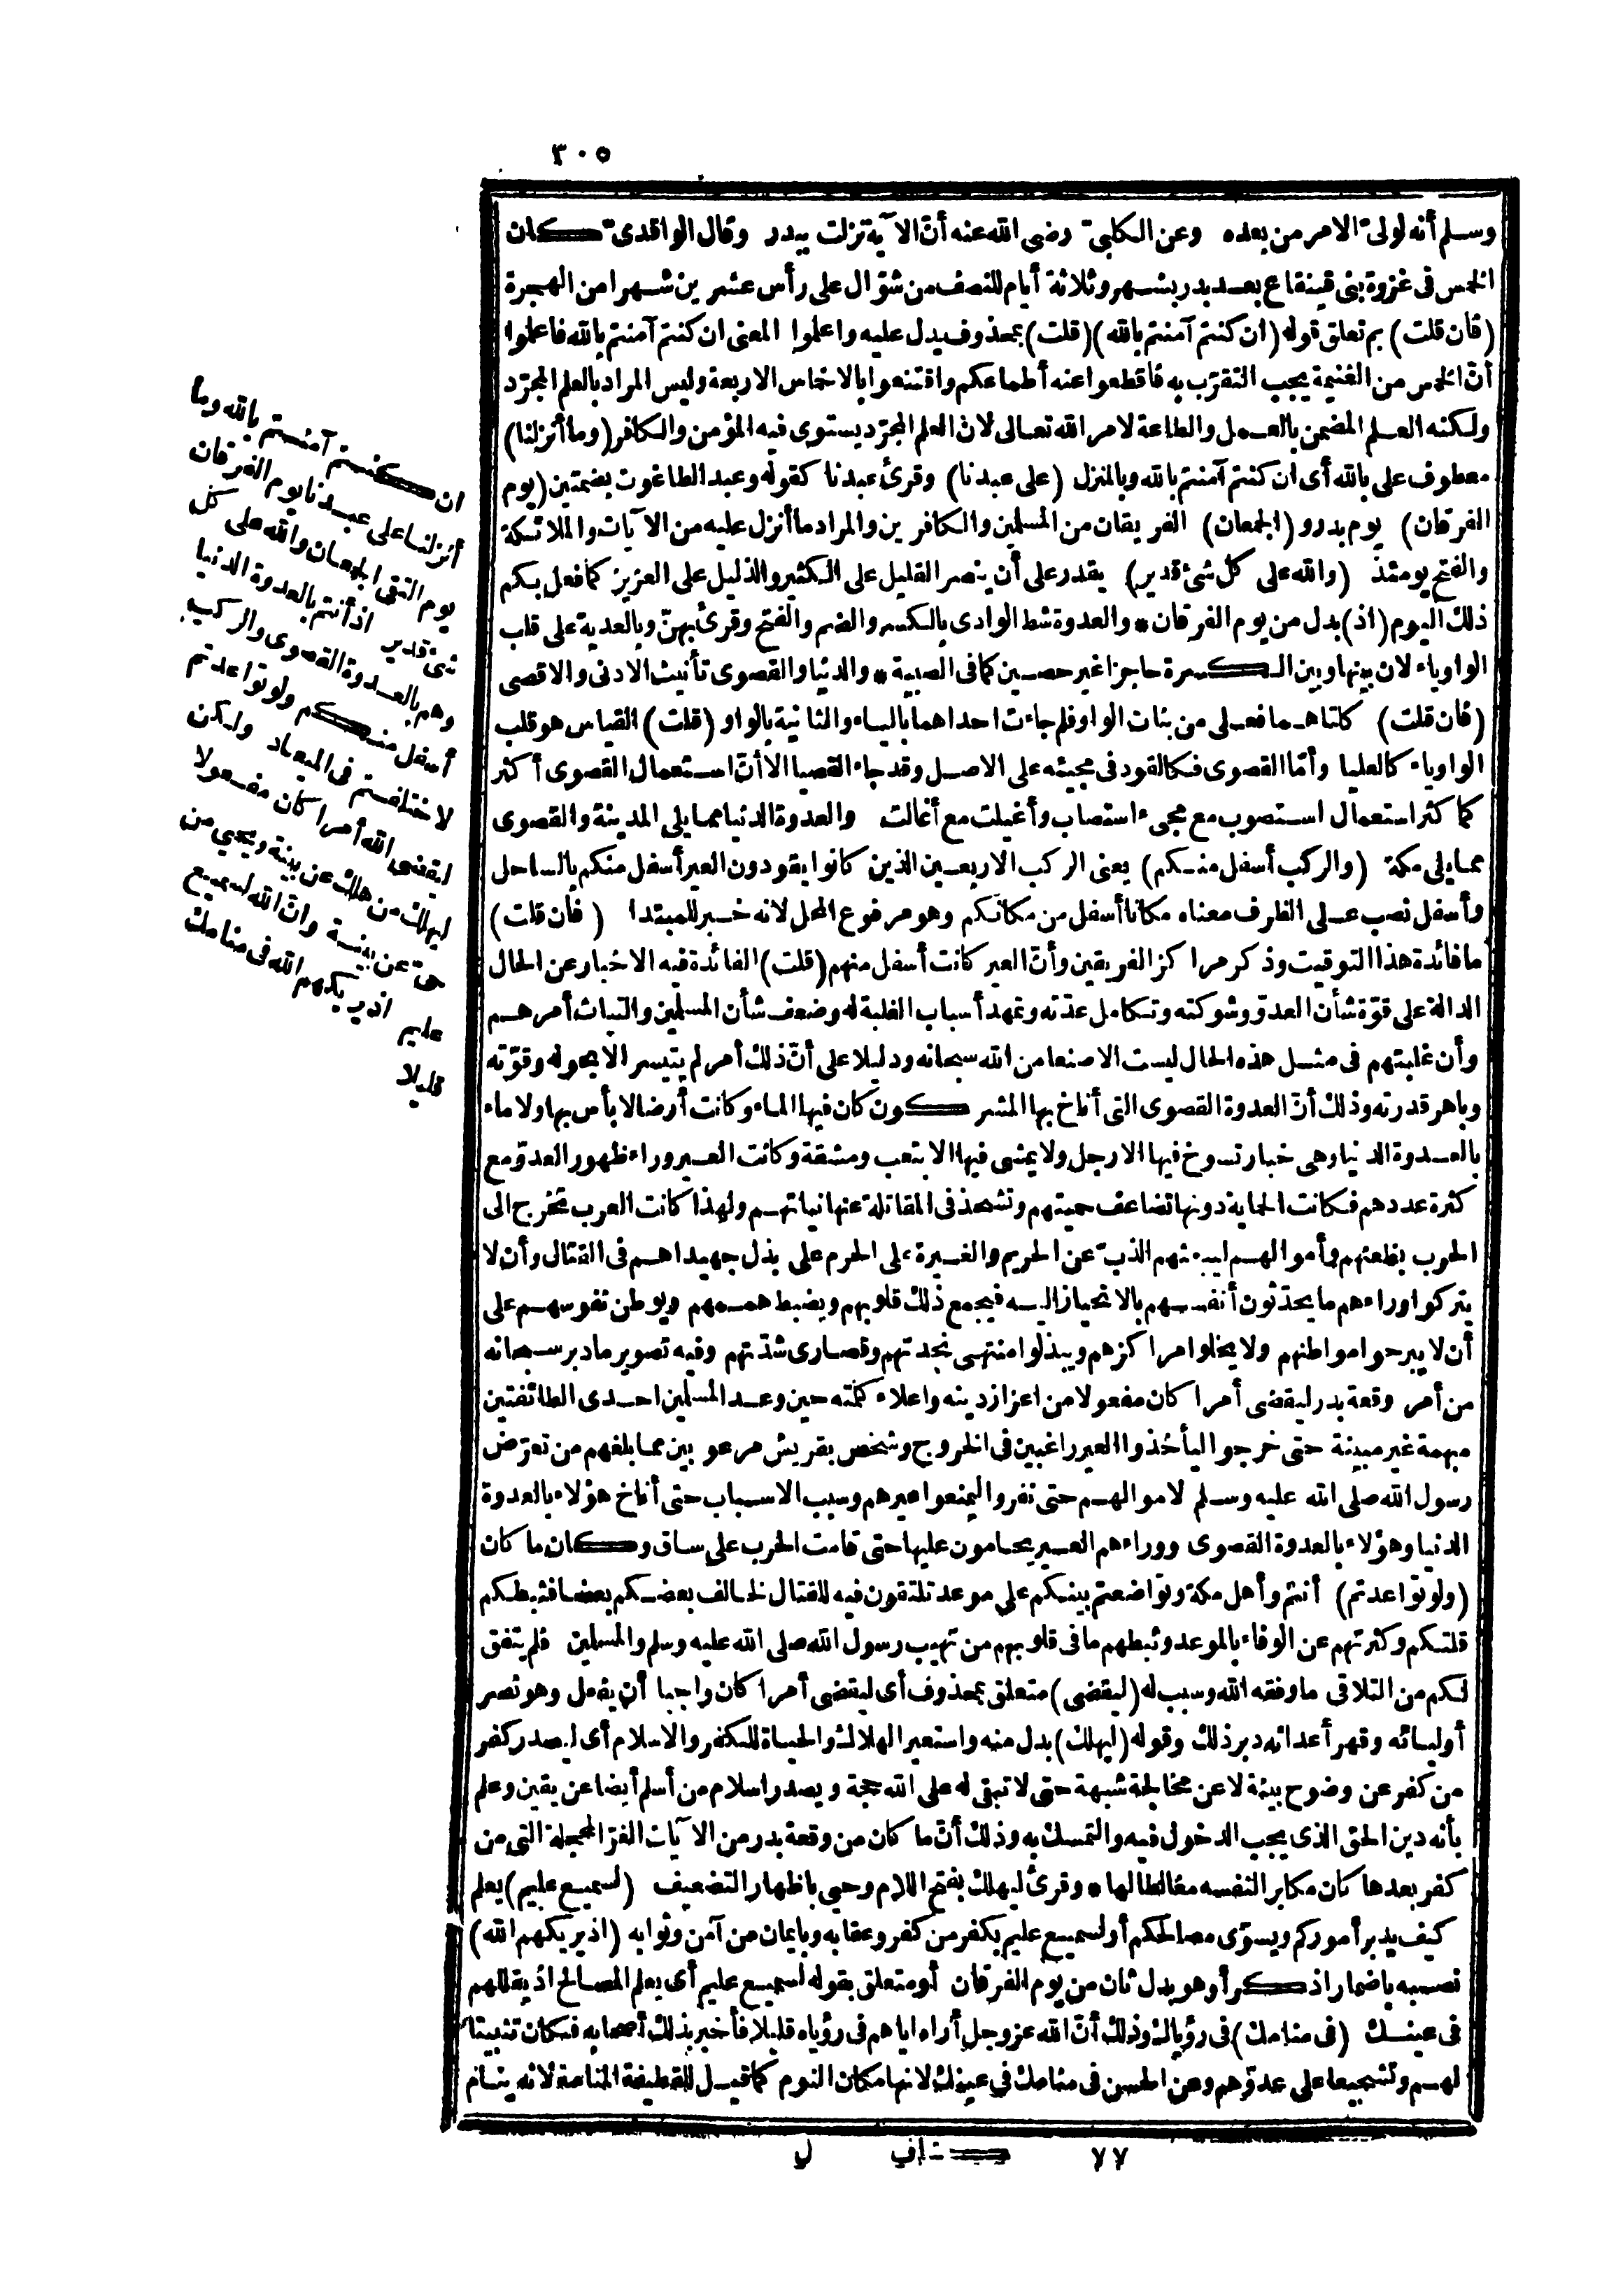 ٣٠٥
وسلم أنه لولىّ الامر من بعده وعن الكلبىّ رضى الله عنه أنّ الآية نزلت ببدر وقال الواقدىّ كان
الخمس فى غزوة بنى قينقاع بعد بدر بشهر وثلاثة أيام للنصف من شوّال على رأس عشرين شهرا من الهجرة
(فان قلت) بم تعلق قوله (ان كنتم آمنتم بالله) (قلت) بمحذوف يدل عليه واعلموا المعنى ان كنتم آمنتم بالله فاعلموا
أنّ الخمس من الغنيمة يجب التقرّب به فاقطعوا عنه أطماعكم واقتنعوا بالاخماس الاربعة وليس المراد بالعلم المجرّد
ولكنه العلم المضمن بالعمل والطاعة لامر الله تعالى لانّ العلم المجرّد يستوى فيه المؤمن والكافر (وما أنزلنا)
معطوف على بالله أى ان كنتم آمنتم بالله وبالمنزل (على عبدنا) وقرئ عبدنا كقوله وعبد الطاغوت بضمتين (يوم
الفرقان) يوم بدر و (الجمعان) الفريقان من المسلمين والكافرين والمراد ما أنزل عليه من الآيات والملائكة
والفتح يومئذ (والله على كل شئ قدير) يقدر على أن ينصر القليل على الكثير والذليل على العزيز كما فعل بكم
ذلك اليوم (اذ) بدل من يوم الفرقان * والعدوة شط الوادى بالكسر والضم والفتح وقرئ بهنّ وبالعدية على قلب
الواو ياء لان بينها وبين الكسرة حاجزا غير حصين كما فى الصبية * والدنيا والقصوى تأنيث الادنى والاقصى
(فان قلت) كلتاهما فعلى من بنات الواو فلم جاءت احداهما بالياء والثانية بالواو (قلت) القياس هو قلب
الواو ياء كالعليا وأمّا القصوى فكالقود فى مجيئه على الاصل وقد جاء القصيا الا أنّ استعمال القصوى أكثر
كما كثر استعمال استصوب مع مجىء استصاب وأغيلت مع أغالت والعدوة الدنيا مما يلى المدينة والقصوى
مما يلى مكة (والركب أسفل منكم) يعنى الركب الاربعين الذين كانوا يقودون العير أسفل منكم بالساحل
وأسفل نصب على الظرف معناه مكانا أسفل من مكانكم وهو مرفوع المحل لانه خبر للمبتدا (فان قلت)
ما فائدة هذا التوقيت وذكر مراكز الفريقين وأنّ العير كانت أسفل منهم (قلت) الفائدة فيه الاخبار عن الحال
الدالة على قوّة شأن العدوّ وشوكته وتكامل عدّته وتمهد أسباب الغلبة له وضعف شأن المسلمين والتياث أمرهم
وأن غلبتهم فى مثل هذه الحال ليست الا صنعا من الله سبحانه ودليلا على أنّ ذلك أمر لم يتيسر الا بحوله وقوّته
وباهر قدرته وذلك أنّ العدوة القصوى التى أناخ بها المشركون كان فيها الماء وكانت أرضا لا بأس بها ولا ماء
بالعدوة الدنيا وهى خبار تسوخ فيها الارجل ولا يمشى فيها الا بتعب ومشقة وكانت العير وراء ظهور العدوّ مع
كثرة عددهم فكانت الحماية دونها تضاعف حميتهم وتشحذ فى المقاتلة عنها نياتهم ولهذا كانت العرب تخرج الى
الحرب بظعنهم وأموالهم ليبعثهم الذبّ عن الحريم والغيرة على الحرم على بذل جهيداهم فى القتال وأن لا
يتركوا وراءهم ما يحدّثون أنفسهم بالانحياز اليه فيجمع ذلك قلوبهم ويضبط هممهم ويوطن نفوسهم على
أن لا يبرحوا مواطنهم ولا يخلوا مراكزهم ويبذلوا منتهى نجدتهم وقصارى شدّتهم وفيه تصوير ما دبر سبحانه
من أمر وقعة بدر ليقضى أمرا كان مفعولا من اعزاز دينه واعلاء كلمته حين وعد المسلمين احدى الطائفتين
مبهمة غير مبينة حتى خرجوا ليأخذوا العير راغبين فى الخروج وشخص بقريش مرعوبين مما بلغهم من تعرّض
رسول الله صلى الله عليه وسلم لاموالهم حتى نفروا ليمنعوا عيرهم وسبب الاسباب حتى أناخ هؤلاء بالعدوة
الدنيا وهؤلاء بالعدوة القصوى ووراءهم العير يحامون عليها حتى قامت الحرب على ساق وكان ما كان
(ولو تواعدتم) أنتم وأهل مكة وتواضعتم بينكم على موعد تلتقون فيه للقتال لخالف بعضكم بعضا فثبطكم
قلتكم وكثرتهم عن الوفاء بالموعد وثبطهم ما فى قلوبهم من تهيب رسول الله صلى الله عليه وسلم والمسلمين فلم يتفق
لكم من التلاقى ما وفقه الله وسبب له (ليقضى) متعلق بمحذوف أى ليقضى أمرا كان واجبا أن يفعل وهو نصر
أوليائه وقهر أعدائه دبر ذلك وقوله (ليهلك) بدل منه واستعير الهلاك والحياة للكفر والاسلام أى ليصدر كفر
من كفر عن وضوح بينة لا عن مخالجة شبهة حتى لا تبقى له على الله حجة ويصدر اسلام من أسلم أيضا عن يقين وعلم
بأنه دين الحق الذى يجب الدخول فيه والتمسك به وذلك أنّ ما كان من وقعة بدر من الآيات الغرّ المحجلة التى من
كفر بعدها كان مكابر النفسه مغالطا لها * وقرئ ليهلك بفتح اللام وحيى باظهار التضعيف (لسميع عليم) يعلم
كيف يدبر أموركم ويسوّى مصالحكم أو لسميع عليم بكفر من كفر وعقابه وبايمان من آمن وثوابه (اذ يريكهم الله)
نصبه باضمار اذكر أو هو بدل ثان من يوم الفرقان أو متعلق بقوله لسميع عليم أى يعلم المصالح اذ يقللهم
فى عينك (فى منامك) فى رؤياك وذلك أنّ الله عز وجل أراه اياهم فى رؤياه قليلا فأخبر بذلك أصحابه فكان تثبيتا
لهم وتشجيعا على عدوّهم وعن الحسن فى منامك فى عينك لانها مكان النوم كما قيل للقطيفة المنامة لانه ينام
ان كنتم آمنتم بالله وما
أنزلنا على عبدنا يوم الفرقان
يوم التقى الجمعان والله على كل
شئ قدير اذ أنتم بالعدوة الدنيا
وهم بالعدوة القصوى والركب
أسفل منكم ولو تواعدتم
لاختلفتم فى الميعاد ولكن
ليقضى الله أمرا كان مفعولا
ليهلك من هلك عن بينة ويحيى من
حىّ عن بينة وانّ الله لسميع
عليم اذ يريكهم الله فى منامك
قليلا
٧٧ كشاف ل